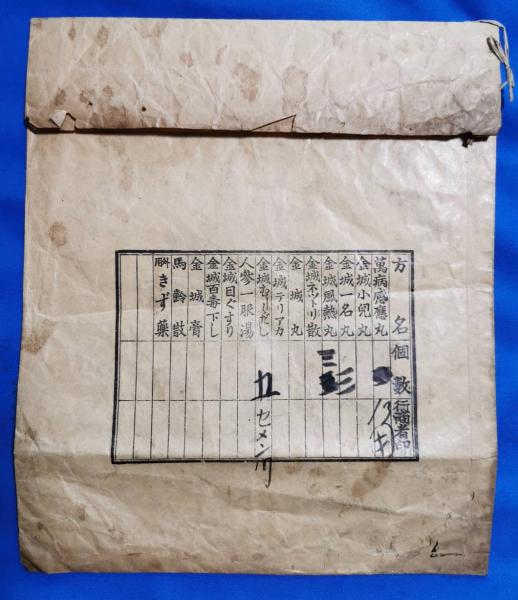 方名
個数
行商者印
萬病感應丸
金城小兒丸
金城一名丸
金城風熱丸
金城ネツトリ散
金城丸
金城テリアカ
金城むしくだし
人參一服湯
金城目ぐすり
金城百毒下し
金城膏
馬齡散
きず藥
三
三
五
セメン